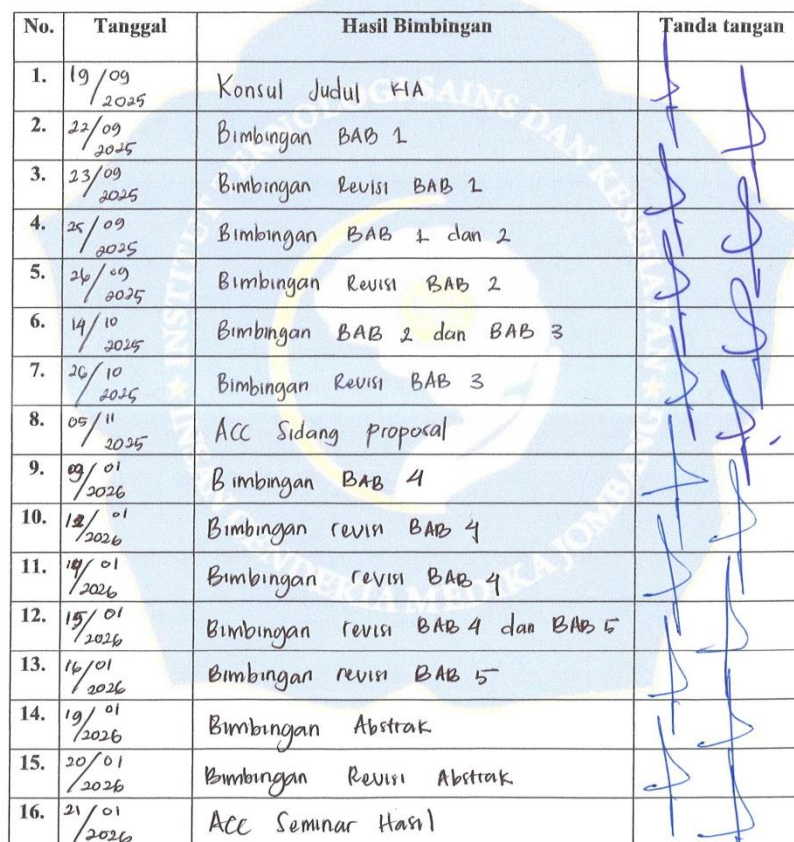 No. Tanggal Hasil Bimbingan Tanda tangan
1. 19/09 2025 Konsul Judul KIA
2. 22/09 2025 Bimbingan BAB 1
3. 23/09 2025 Bimbingan Revisi BAB 1
4. 25/09 2025 Bimbingan BAB 1 dan 2
5. 26/09 2025 Bimbingan Revisi BAB 2
6. 14/10 2025 Bimbingan BAB 2 dan BAB 3
7. 26/10 2025 Bimbingan Revisi BAB 3
8. 05/11 2025 ACC Sidang proposal
9. 09/01 2026 Bimbingan BAB 4
10. 12/01 2026 Bimbingan revisi BAB 4
11. 14/01 2026 Bimbingan revisi BAB 4
12. 15/01 2026 Bimbingan revisi BAB 4 dan BAB 5
13. 16/01 2026 Bimbingan revisi BAB 5
14. 19/01 2026 Bimbingan Abstrak
15. 20/01 2026 Bimbingan Revisi Abstrak
16. 21/01 2026 ACC Seminar Hasil
INSTITUT TEKNOLOGI SAINS DAN KESEHATAN
INSAN CENDEKIA MEDIKA JOMBANG